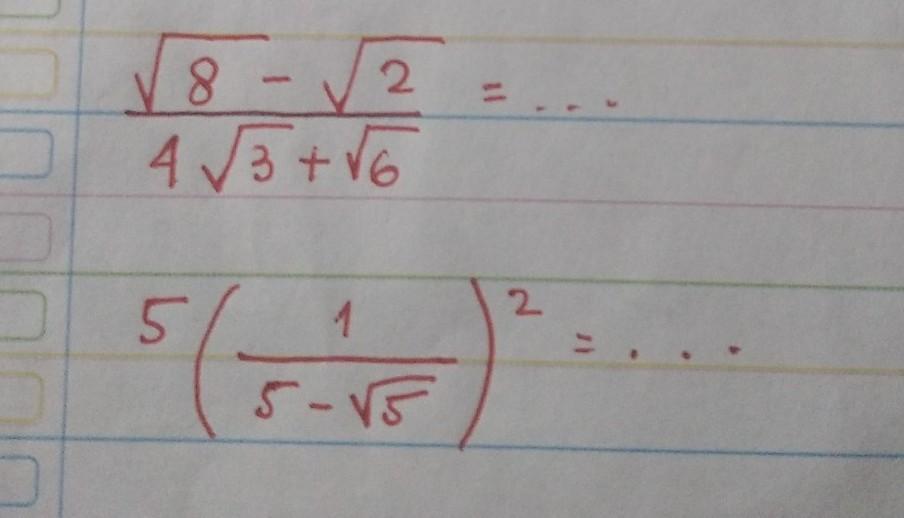 (√8 - √2)/(4√3 + √6) = ...
5(1/(5 - √5))² = ...